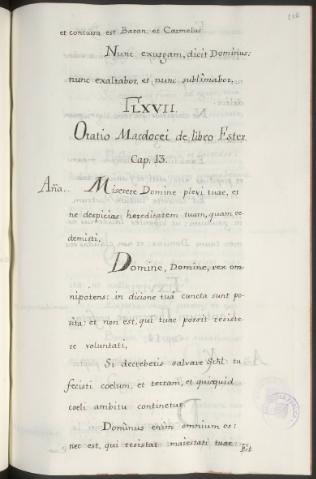 et concussa est Basan, et Carmelus
Nunc exurgam, dicit Dominus:
nunc exaltabor, et nunc sublimabor.
LXVII.
Oratio Mardoçei de libro Ester
Cap. 13.
Aña. Miserere Domine plevi tuae, et
ne despicias hereditatem tuam, quam re-
demisti.
Domine, Domine, rex om
nipotens: in dicione tua cuncta sunt po-
sita: et non est, qui tuae possit resiste
re voluntati,
Si decreberis salvare Isrhl: tu
fecisti coelum, et terram, et quidquid
coeli ambitu continetur.
Dominus enim omnium es:
nec est, qui resistat maiestati tuae.